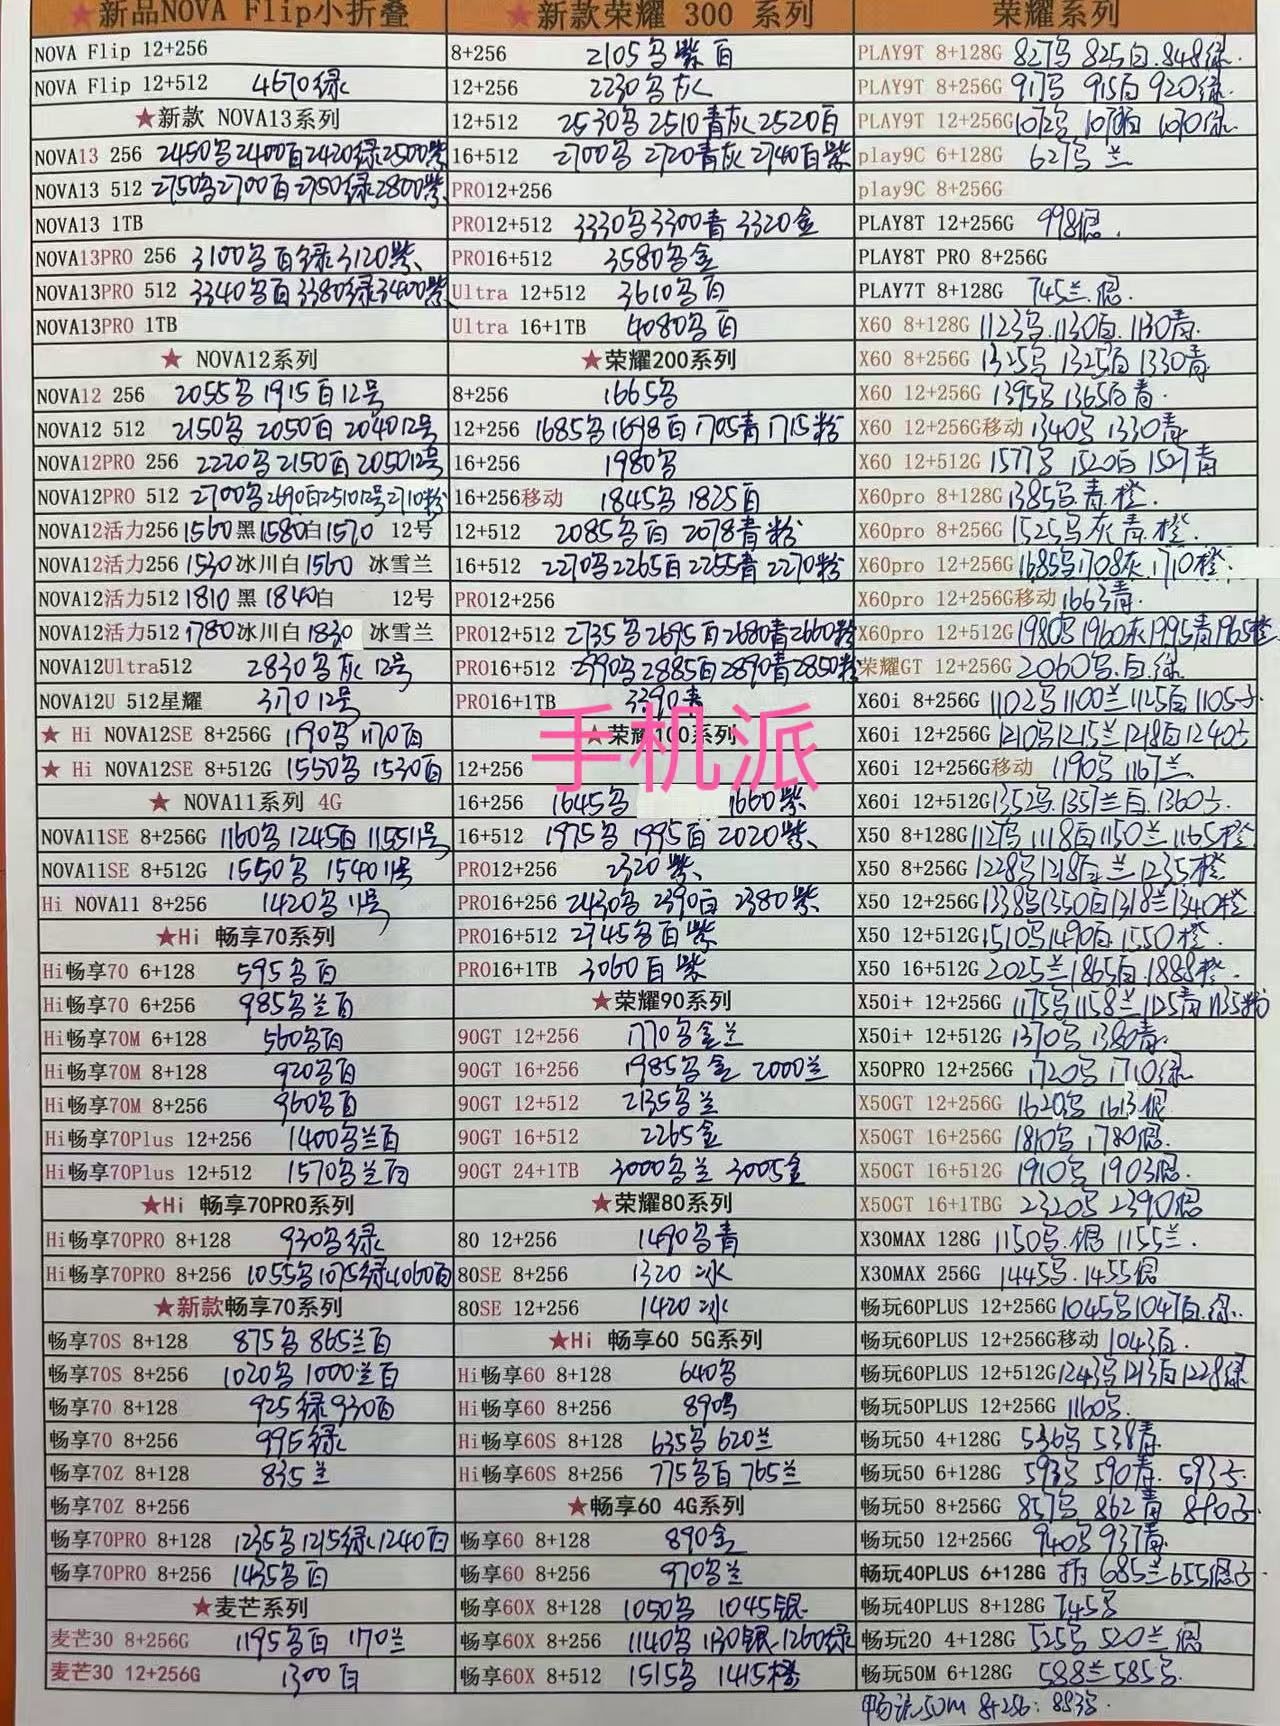 ★新品NOVA Flip小折叠
NOVA Flip 12+256
NOVA Flip 12+512 4670绿
★新款 NOVA13系列
NOVA13 256 2450乌2400百2420绿2500紫
NOVA13 512 2750乌2700百2750绿2800紫
NOVA13 1TB
NOVA13PRO 256 3100乌百绿3120紫
NOVA13PRO 512 3340乌百3380绿3400紫
NOVA13PRO 1TB
★ NOVA12系列
NOVA12 256 2055乌1915百12号
NOVA12 512 2150乌2050百204012号
NOVA12PRO 256 2220乌2150百205012号
NOVA12PRO 512 2700乌2690白251012号2710粉
NOVA12活力256 1560黑1580白1570 12号
NOVA12活力256 1530冰川白1560 冰雪兰
NOVA12活力512 1810黑1840白 12号
NOVA12活力512 1780冰川白1830 冰雪兰
NOVA12Ultra512 2830乌灰12号
NOVA12U 512星耀 317012号
★ Hi NOVA12SE 8+256G 1190乌1170百
★ Hi NOVA12SE 8+512G 1550乌1530百
★ NOVA11系列 4G
NOVA11SE 8+256G 1160乌1245百115511号
NOVA11SE 8+512G 1550乌154011号
Hi NOVA11 8+256 1420乌11号
★Hi 畅享70系列
Hi畅享70 6+128 595乌百
Hi畅享70 6+256 985乌兰百
Hi畅享70M 6+128 560乌百
Hi畅享70M 8+128 920乌百
Hi畅享70M 8+256 960乌百
Hi畅享70Plus 12+256 1400乌兰百
Hi畅享70Plus 12+512 1570乌兰百
★Hi 畅享70PRO系列
Hi畅享70PRO 8+128 930乌绿
Hi畅享70PRO 8+256 1055乌1075绿1060百
★新款畅享70系列
畅享70S 8+128 875乌865兰百
畅享70S 8+256 1020乌1000兰百
畅享70 8+128 925绿930百
畅享70 8+256 995绿
畅享70Z 8+128 835兰
畅享70Z 8+256
畅享70PRO 8+128 1235乌1215绿1240百
畅享70PRO 8+256 1435乌百
★麦芒系列
麦芒30 8+256G 1195乌百 1170兰
麦芒30 12+256G 1300百
★新款荣耀 300 系列
8+256 2105乌紫百
12+256 2230乌灰
12+512 2530乌2510青灰2520百
16+512 2700乌2720青灰2740百紫
PRO12+256
PRO12+512 3330乌3300青3320金
PRO16+512 3580乌金
Ultra 12+512 3610乌百
Ultra 16+1TB 4080乌百
★荣耀200系列
8+256 1665乌
12+256 1685乌1698百1705青1715粉
16+256 1980乌
16+256移动 1845乌1825百
12+512 2085乌百 2078青粉
16+512 2270乌2265百2255青2270粉
PRO12+256
PRO12+512 2735乌2695百2680青2660粉
PRO16+512 2990乌2885百2890青2850粉
PRO16+1TB 3390青
★荣耀100系列
手机派
12+256
16+256 1645乌 1660紫
16+512 1975乌1995百2020紫
PRO12+256 2320紫
PRO16+256 2430乌2390百2380紫
PRO16+512 2745乌百紫
PRO16+1TB 3060百紫
★荣耀90系列
90GT 12+256 1770乌金兰
90GT 16+256 1985乌金 2000兰
90GT 12+512 2135乌兰
90GT 16+512 2265金
90GT 24+1TB 3000乌兰 3005金
★荣耀80系列
80 12+256 1490乌青
80SE 8+256 1320冰
80SE 12+256 1420冰
★Hi 畅享60 5G系列
Hi畅享60 8+128 640乌
Hi畅享60 8+256 890乌
Hi畅享60S 8+128 635乌620兰
Hi畅享60S 8+256 775乌百765兰
★畅享60 4G系列
畅享60 8+128 890金
畅享60 8+256 970乌兰
畅享60X 8+128 1050乌 1045银
畅享60X 8+256 1140乌1130银1260绿
畅享60X 8+512 1515乌1415橙
荣耀系列
PLAY9T 8+128G 827乌 825百.848绿.
PLAY9T 8+256G 917乌 915百920绿.
PLAY9T 12+256G1072乌 1070百 1070绿.
play9C 6+128G 627乌兰
play9C 8+256G
PLAY8T 12+256G 998银.
PLAY8T PRO 8+256G
PLAY7T 8+128G 745兰.银.
X60 8+128G 1123乌.1130百.1130青.
X60 8+256G 1325乌 1325百1330青
X60 12+256G 1395乌1365百青.
X60 12+256G移动 1340乌1330青
X60 12+512G 1577乌 1520百1527青
X60pro 8+128G 1385乌.青.橙.
X60pro 8+256G 1525乌灰青.橙.
X60pro 12+256G 1685乌1708灰.1710橙.
X60pro 12+256G移动 1663青.
X60pro 12+512G 1980乌1960灰1995青1965橙
荣耀GT 12+256G 2060乌.百.绿
X60i 8+256G 1102乌1100兰1125百1105
X60i 12+256G 1210乌1215兰1218百1240
X60i 12+256G移动 1190乌1167兰
X60i 12+512G 1352乌.1357兰百.1360
X50 8+128G 1127乌1118百1150兰1165橙
X50 8+256G 1228乌1218百.兰1235橙
X50 12+256G 1338乌1350百1318兰1340橙
X50 12+512G 1510乌1490百.1550橙.
X50 16+512G 2025兰1865百.1888橙.
X50i+ 12+256G 1175乌1158兰1125青1135粉
X50i+ 12+512G 1370乌1380青.
X50PRO 12+256G 1720乌1710绿
X50GT 12+256G 1620乌1613银
X50GT 16+256G 1810乌1780银.
X50GT 16+512G 1910乌1903银.
X50GT 16+1TBG 2320乌2390银
X30MAX 128G 1150乌.银1155兰.
X30MAX 256G 1445乌.1455银
畅玩60PLUS 12+256G1045乌1047百.绿.
畅玩60PLUS 12+256G移动 1043百.
畅玩60PLUS 12+512G1243乌1213百1228绿
畅玩50PLUS 12+256G 1160乌.
畅玩50 4+128G 536乌538青
畅玩50 6+128G 593乌590青.593
畅玩50 8+256G 857乌 862青 890
畅玩50 12+256G 940乌937青
畅玩40PLUS 6+128G 685兰655银
畅玩40PLUS 8+128G 745乌
畅玩20 4+128G 525乌520兰银
畅玩50M 6+128G 588兰585乌.
畅玩50m 8+256: 883乌.